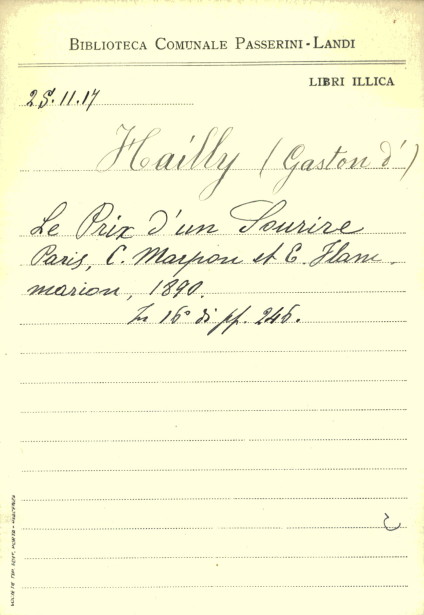 BIBLIOTECA COMUNALE PASSERINI-LANDI
LIBRI ILLICA
25.11.17
Hailly (Gaston d')
Le Prix d'un Sourire
Paris, C. Marpon et E. Flam-
marion, 1890.
In 16° di pp. 246.